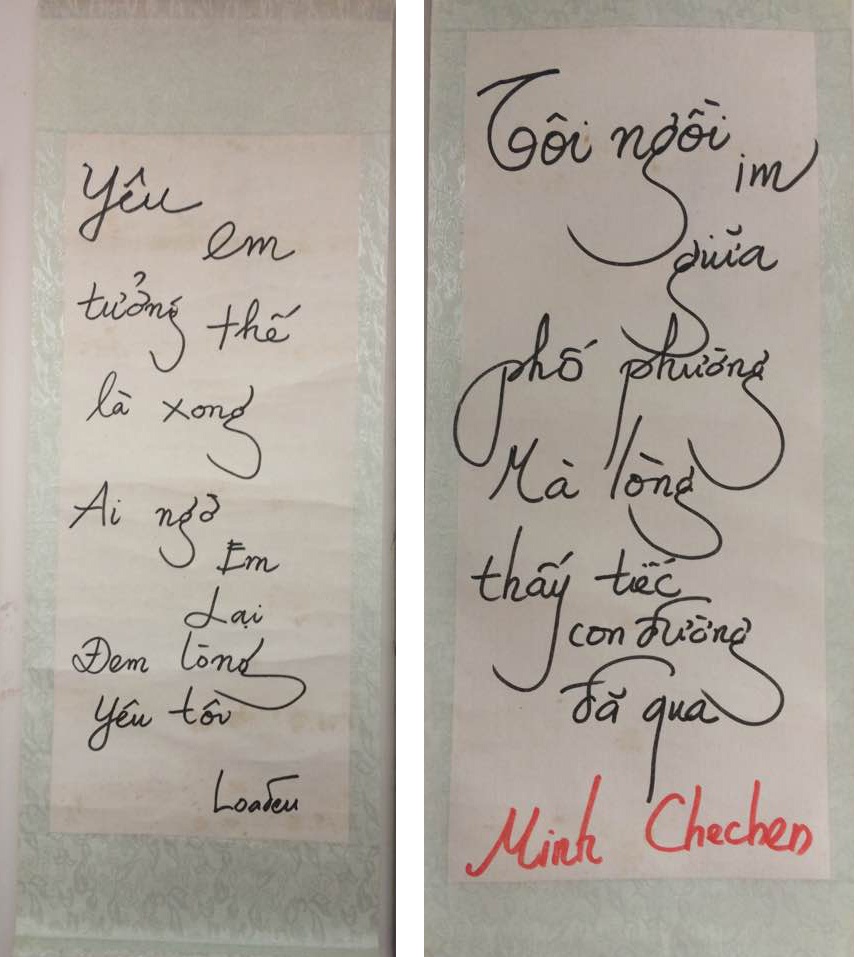 Yêu
em
tưởng thế
là xong
Ai ngờ
Em
Lại
Đem lòng
Yêu tôi
Loađeu
Tôi ngồi
im
giữa
phố phường
Mà lòng
thấy tiếc
con đường
đã qua
Minh Chechen